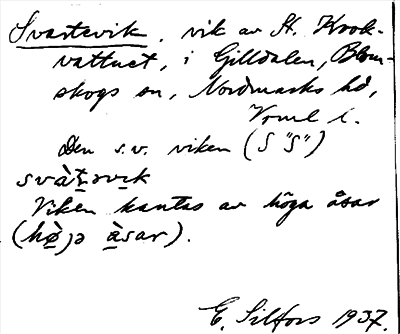 Svartevik, vik av St. Krok-
vattnet, i Gilldalen, Blom-
skogs sn, Nordmarks hd,
Vrml l.
Den s.v. viken (S "S")
svàt̠əvi̠k
Viken kantas av höga åsar
(hø̠̀jə à̠sar).
E. Silfors 1937.